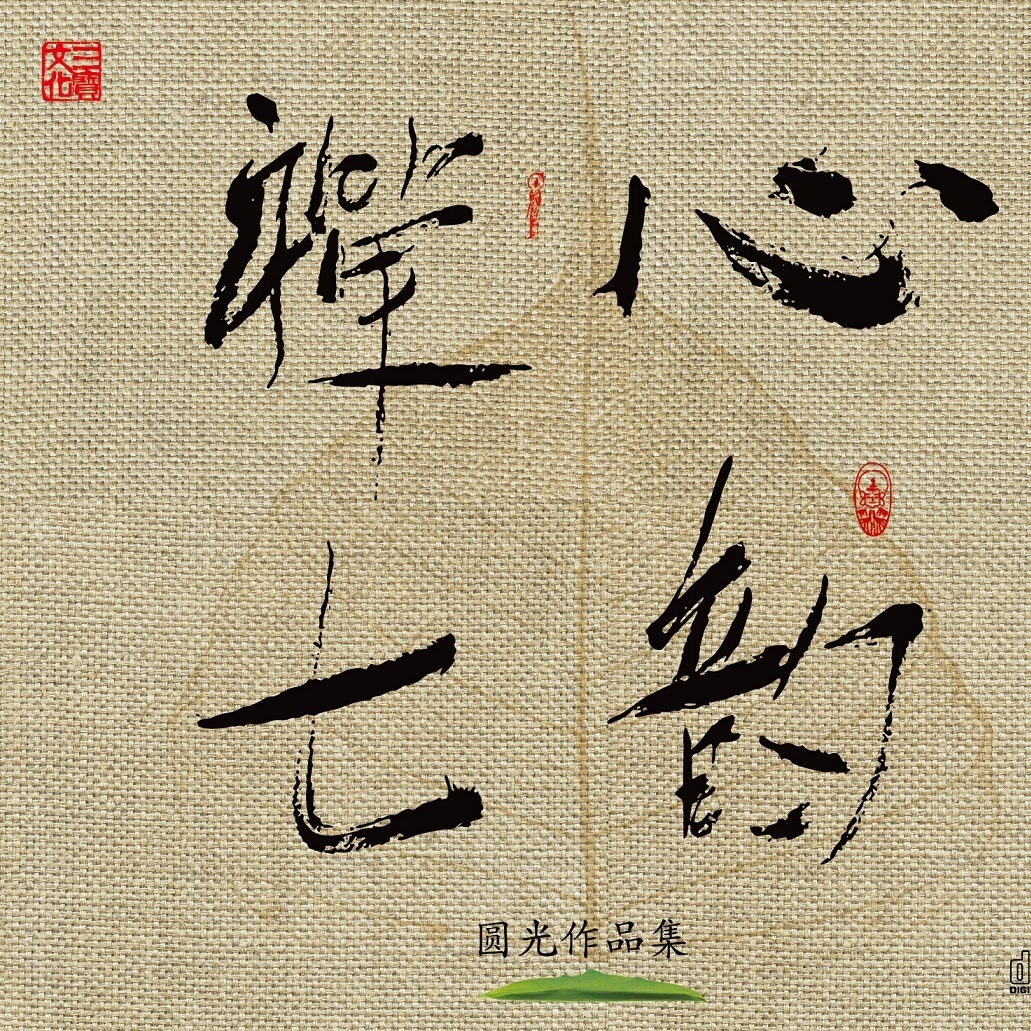 三寶文化
禪心
七韵
圆光作品集
DIGI